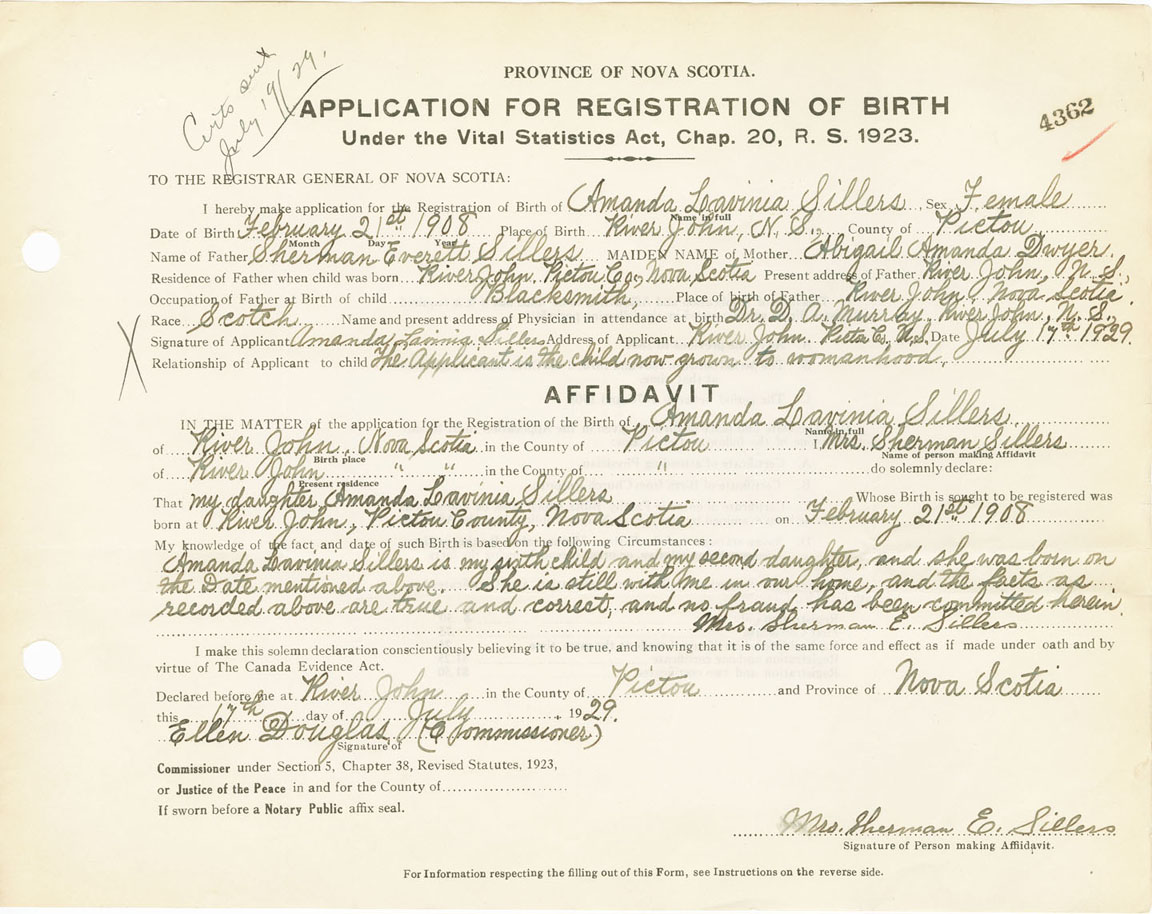 Certs sent
July 19/29.
PROVINCE OF NOVA SCOTIA.
APPLICATION FOR REGISTRATION OF BIRTH
4362
Under the Vital Statistics Act, Chap. 20, R. S. 1923.
TO THE REGISTRAR GENERAL OF NOVA SCOTIA:
I hereby make application for the Registration of Birth of Amanda Lavinia Sillers Sex Female
Name in full
Date of Birth February 21st 1908 Place of Birth River John, N. S., County of Pictou
Month Day Year
Name of Father Sherman Everett Sillers MAIDEN NAME of Mother Abigail Amanda Dwyer.
Residence of Father when child was born River John, Pictou Co., Nova Scotia Present address of Father River John, N. S.,
Occupation of Father at Birth of child Blacksmith, Place of birth of Father River John, Nova Scotia.
Race Scotch Name and present address of Physician in attendance at birth Dr. D. A. Murray River John, N. S.
Signature of Applicant Amanda Lavinia Sillers Address of Applicant River John. Picto Co. N.S. Date July 17th 1929.
Relationship of Applicant to child The Applicant is the child now grown to womanhood,
AFFIDAVIT
IN THE MATTER of the application for the Registration of the Birth of Amanda Lavinia Sillers
Name in full
of River John, Nova Scotia in the County of Pictou I, Mrs. Sherman Sillers
Birth place Name of person making Affidavit
of River John " " in the County of " do solemnly declare:
Present residence
That my daughter Amanda Lavinia Sillers Whose Birth is sought to be registered was
born at River John, Pictou County, Nova Scotia on February 21st 1908
My knowledge of the fact and date of such Birth is based on the following Circumstances:
Amanda Lavinia Sillers is my sixth child and my second daughter, and she was born on
the Date mentioned above. She is still with me in our home, and the facts as
recorded above are true and correct, and no fraud has been committed herein.
Mrs. Sherman E. Sillers
I make this solemn declaration conscientiously believing it to be true, and knowing that it is of the same force and effect as if made under oath and by
virtue of The Canada Evidence Act.
Declared before me at River John in the County of Pictou and Province of Nova Scotia
this 17th day of July, 1929.
Ellen Douglas (Commissioner)
Signature of
Commissioner under Section 5, Chapter 38, Revised Statutes, 1923,
or Justice of the Peace in and for the County of
If sworn before a Notary Public affix seal.
Mrs. Sherman E. Sillers
Signature of Person making Affidavit.
For Information respecting the filling out of this Form, see Instructions on the reverse side.